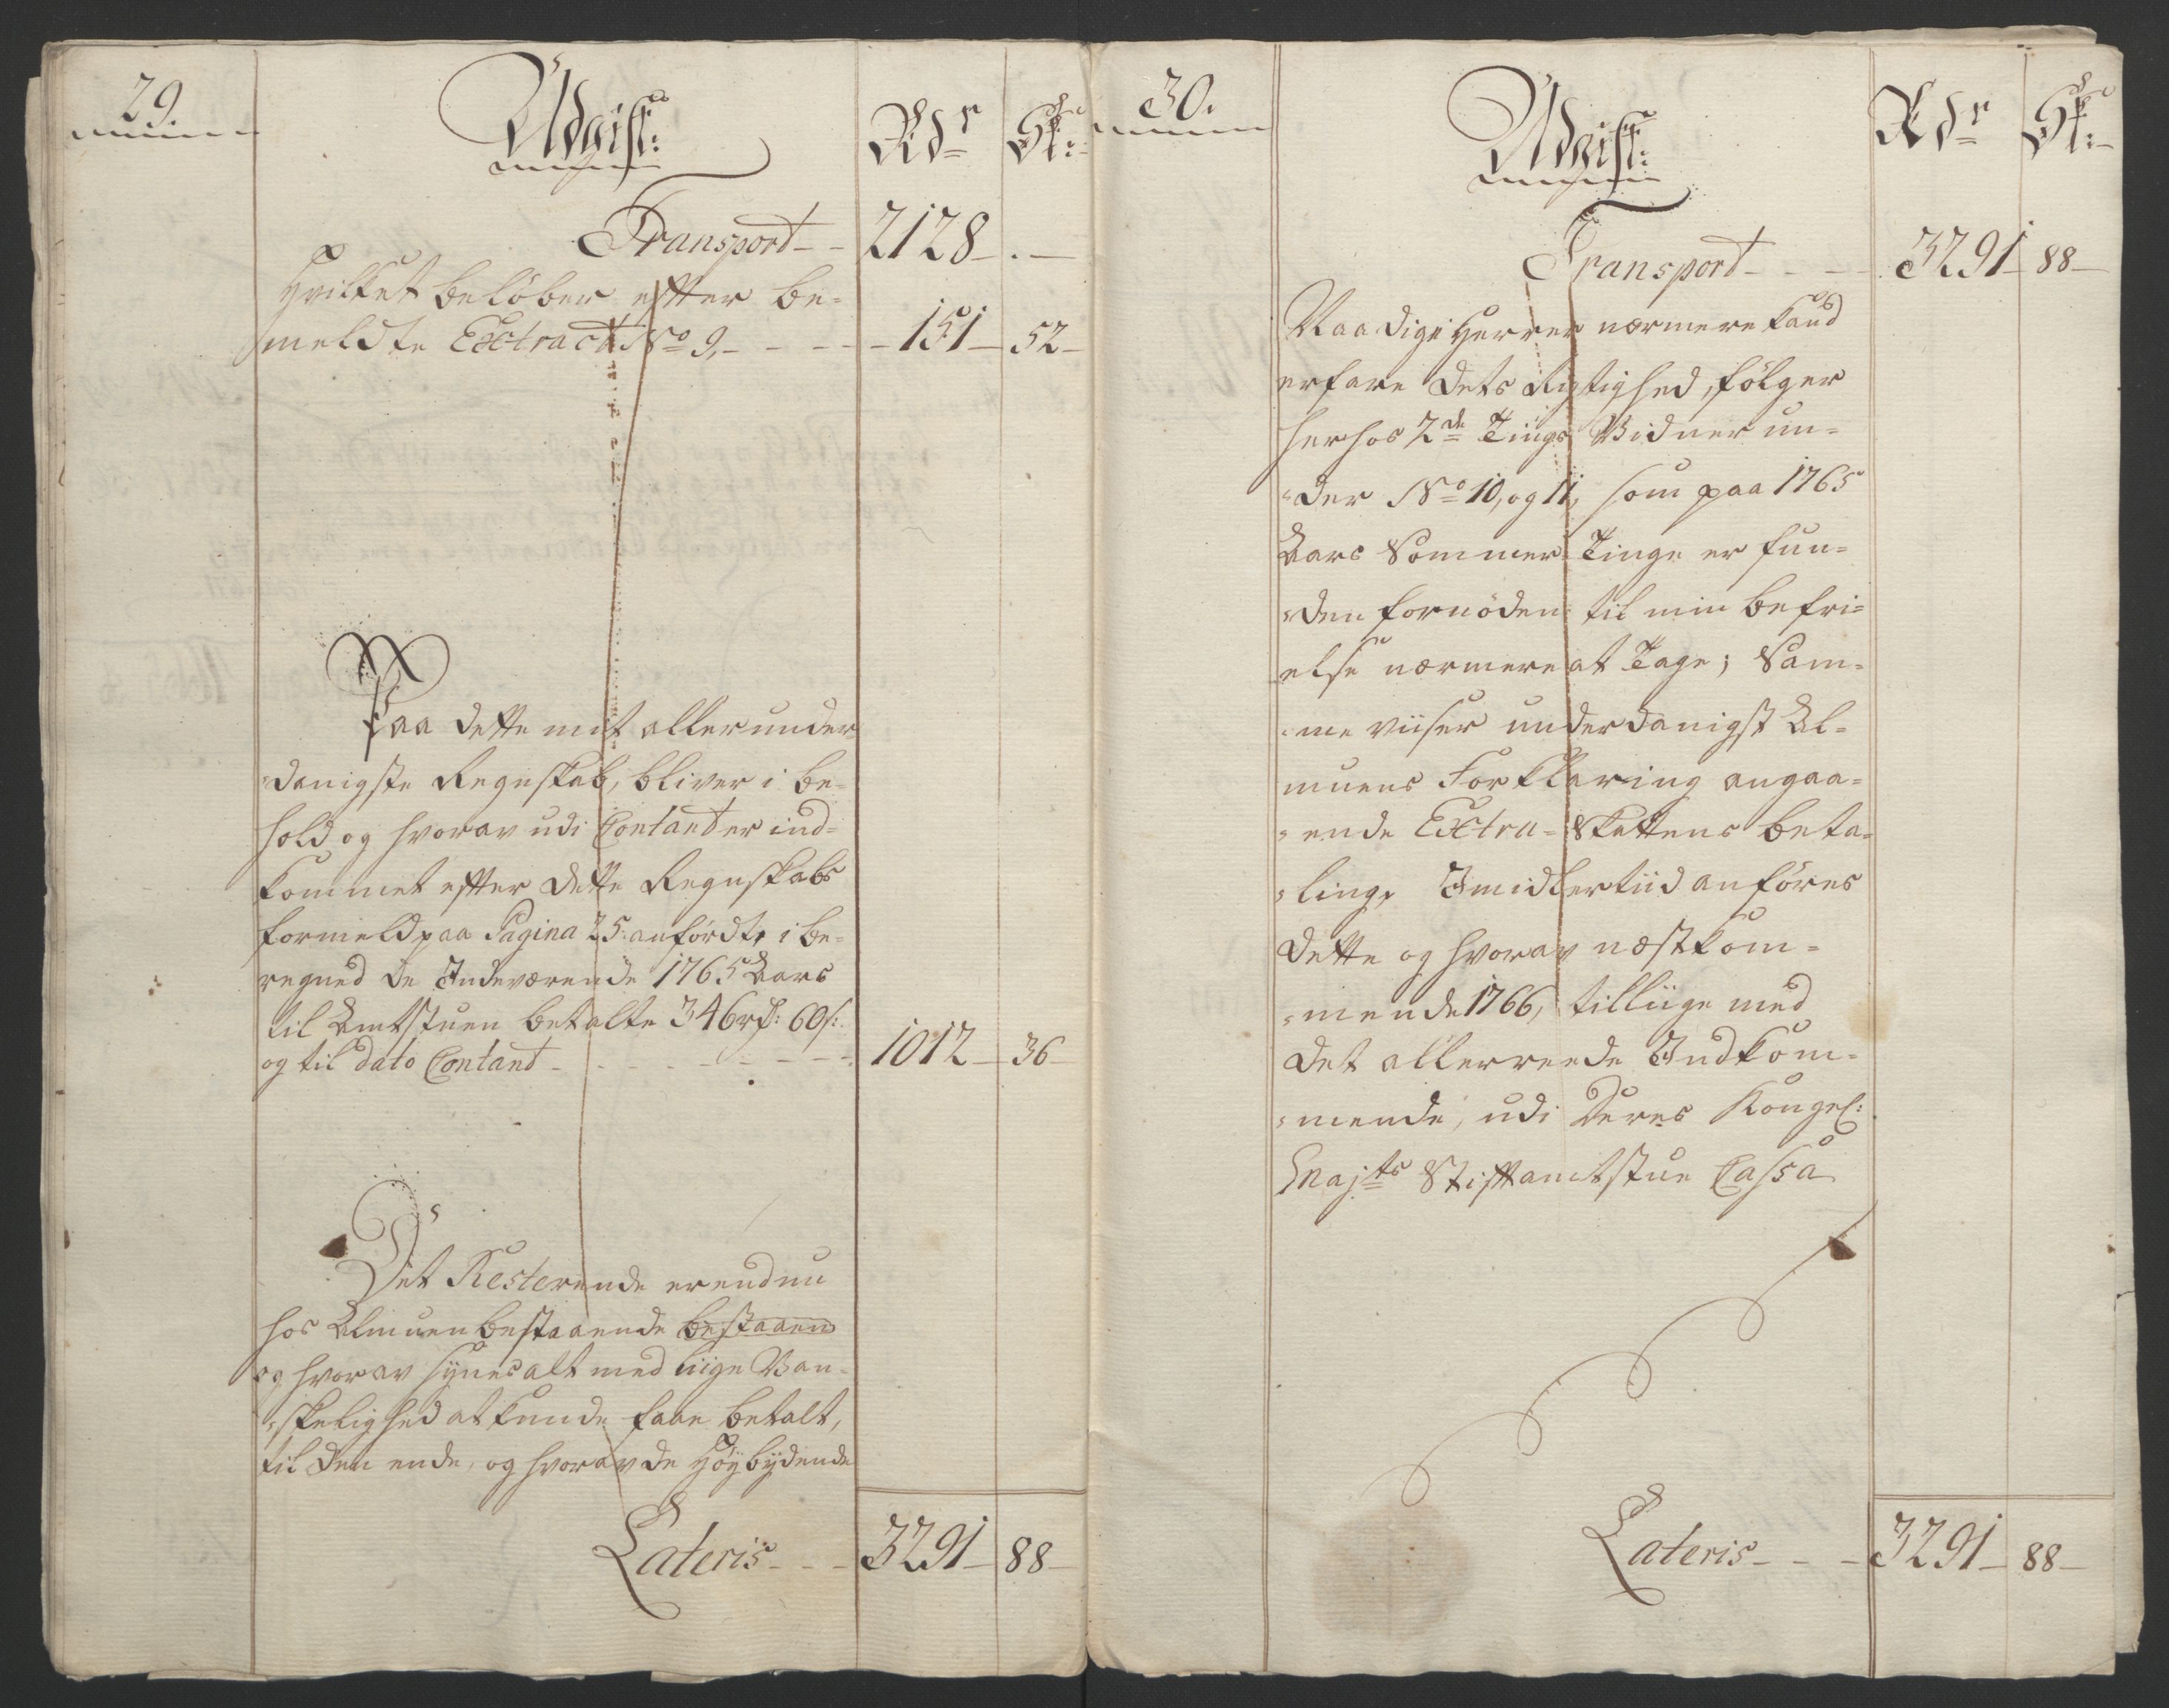 29.
Udgift:
Rdr Sk:
Transport - - 2128 - . -
Hvilket beløber efter be-
meldte Extract No 9, - - - - 151 - 52 -
Paa dette mit allerunder
danigste Regnskab, bliver i be-
hold og hvorav udi Contant er ind-
kommet efter dette Regnskabs
formeld paa Pagina 25: anførdte i be-
regned de Indeværende 1765 Aars
til Amtstuen betalte 346 rd: 60 s:
og til dato Contant - - - - - - - 1012 - 36 -
Det Resterende er endnu
hos Almuen bestaaende bestaaen
og hvorav synes alt med liige Van-
skelighed at kunde faae betalt,
til den ende, og hvorav de Høybydende
Lateris - - - 3291 - 88 -
30.
Udgift:
Rdr Sk:
Transport - - - - 3291 - 88 -
Naadige Herrer nærmere kand
erfare dets Rigtighed, følger
herhos 2de Tings Vidner un-
der No 10, og 11, som paa 1765
Aars Sommer Tinge er fun-
den fornøden til min befri-
else nærmere at Tage; Sam-
me viiser underdanigst Al-
muens Forklaring angaa-
ende Extra-Skattens beta-
ling, Imidlertiid anføres
dette og hvorav næstkom-
mende 1766, tilliige med
det allerreede Indkom-
mende, udi Deres Kongel:
Majts Stiftamtstue Cassa
Lateris - - - 3291 - 88 -